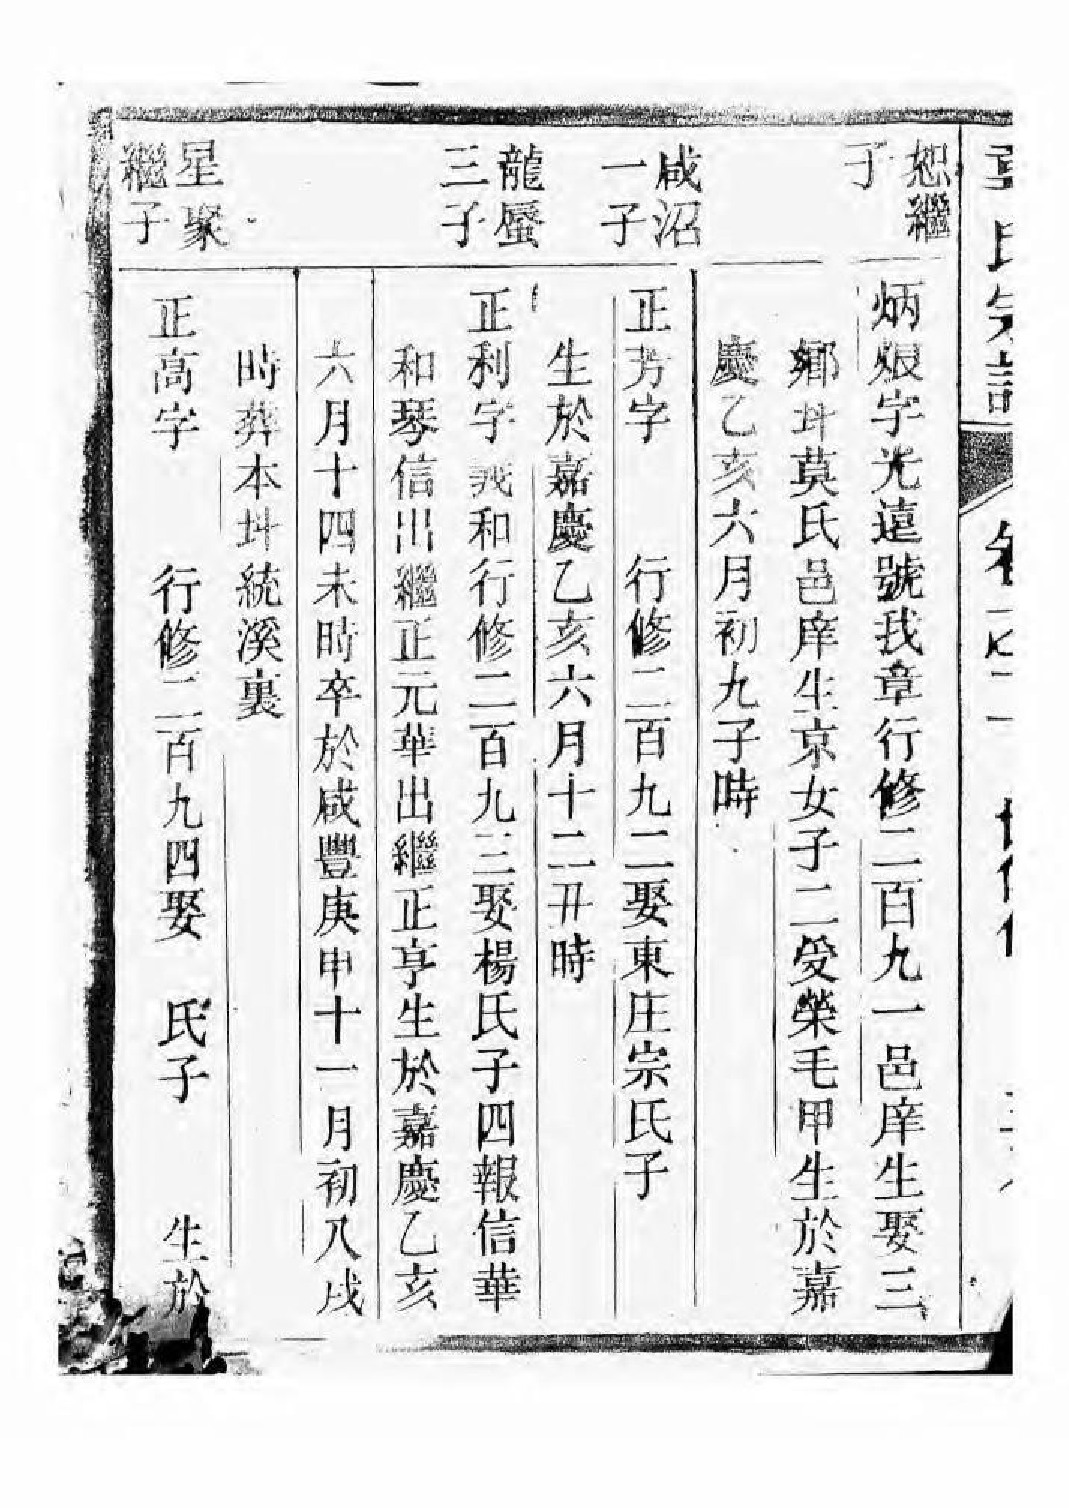 氏宗譜
恕繼子
炳烺字光遠號我章行修二百九一邑庠生娶三
鄉圤莫氏邑庠生京女子二受榮毛甲生於嘉
慶乙亥六月初九子時
咸沼一子
正芳字 行修二百九二娶東庄宗氏子
生於嘉慶乙亥六月十二丑時
龍蜃三子
正利字義和行修二百九三娶楊氏子四報信華
和琴信出繼正元華出繼正亨生於嘉慶乙亥
六月十四未時卒於咸豐庚申十一月初八戌
時葬本圤統溪裏
星聚繼子
正高字 行修二百九四娶 氏子 生於